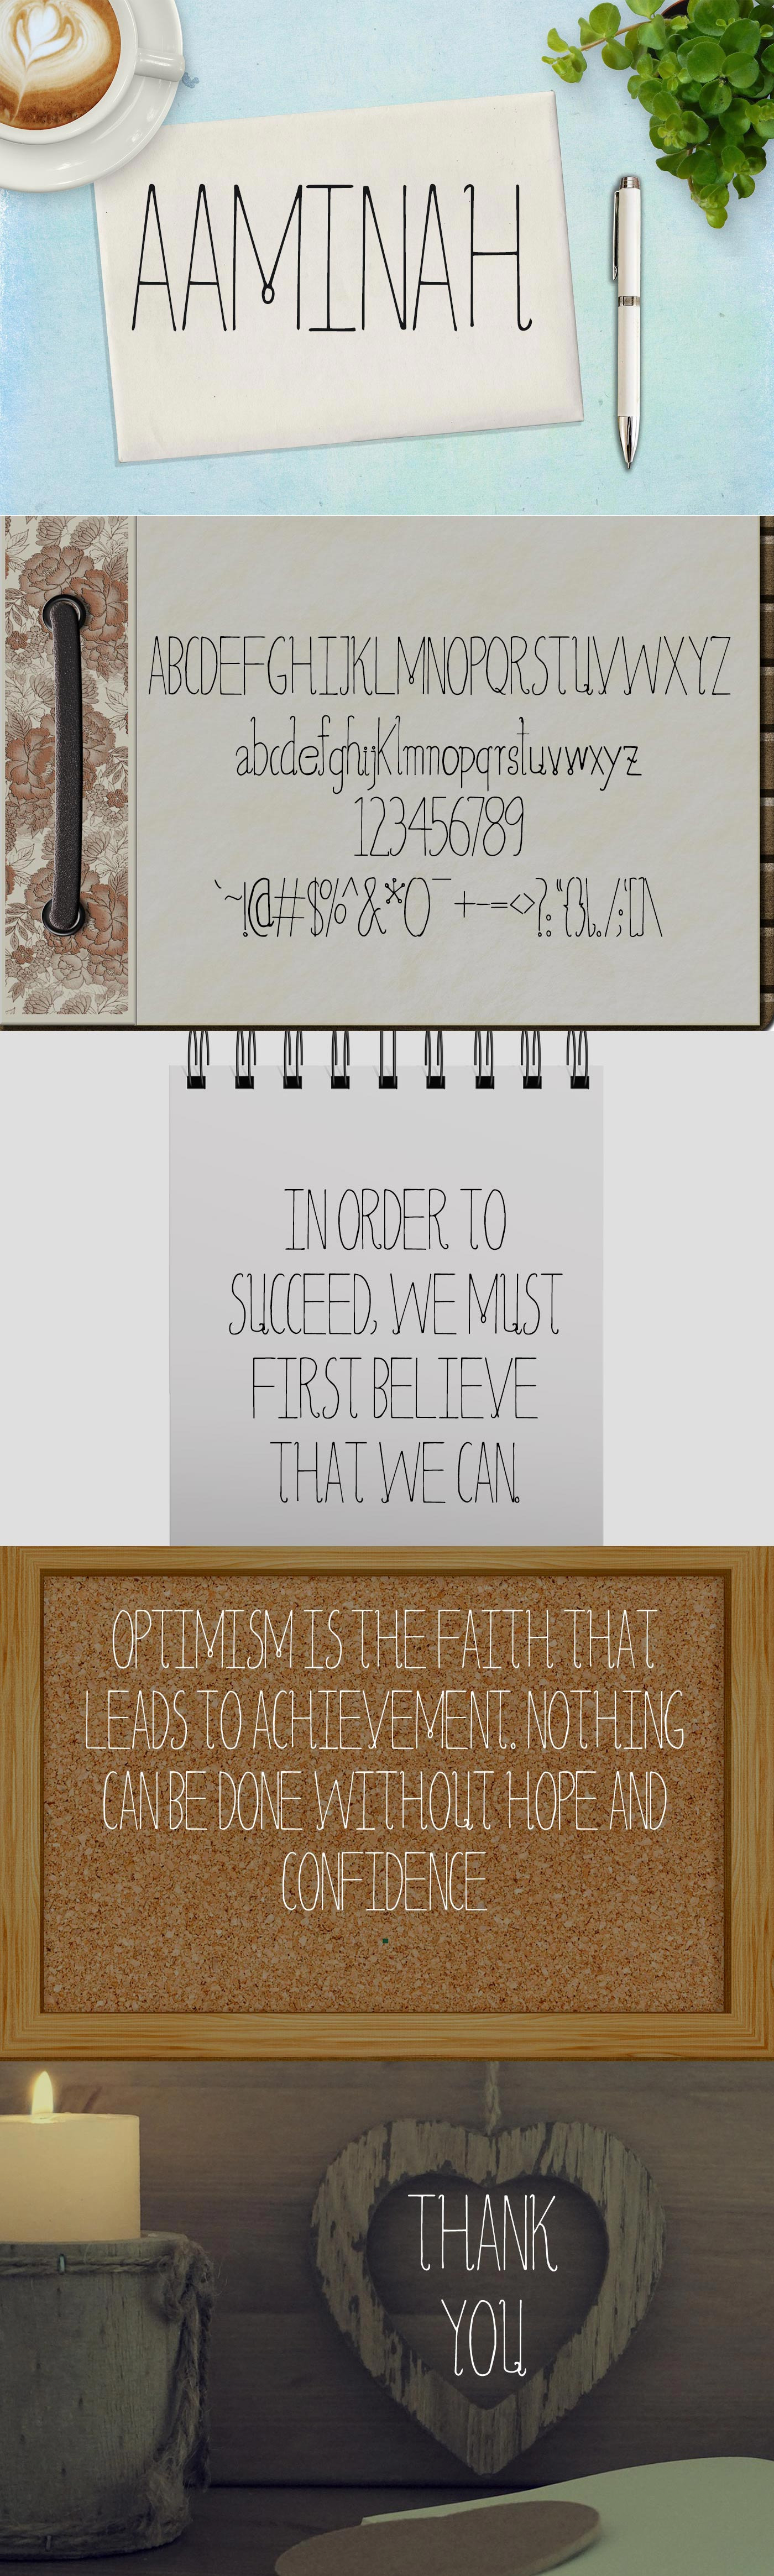 AAMINAH
ABCDEFGHIJKLMNOPQRSTUVWXYZ
abcdefghijklmnopqrstuvwxyz
123456789
`~!@#$%^&*()¯+-=<>?:"{}|,./;'[]\
IN ORDER TO
SUCCEED, WE MUST
FIRST BELIEVE
THAT WE CAN.
OPTIMISM IS THE FAITH THAT
LEADS TO ACHIEVEMENT. NOTHING
CAN BE DONE WITHOUT HOPE AND
CONFIDENCE
THANK
YOU